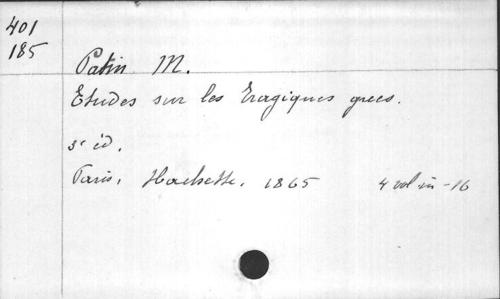 401
185
Patin M.
Etudes sur les tragiques grecs.
3e éd.
Paris, Hachette, 1865 4 vol in-16